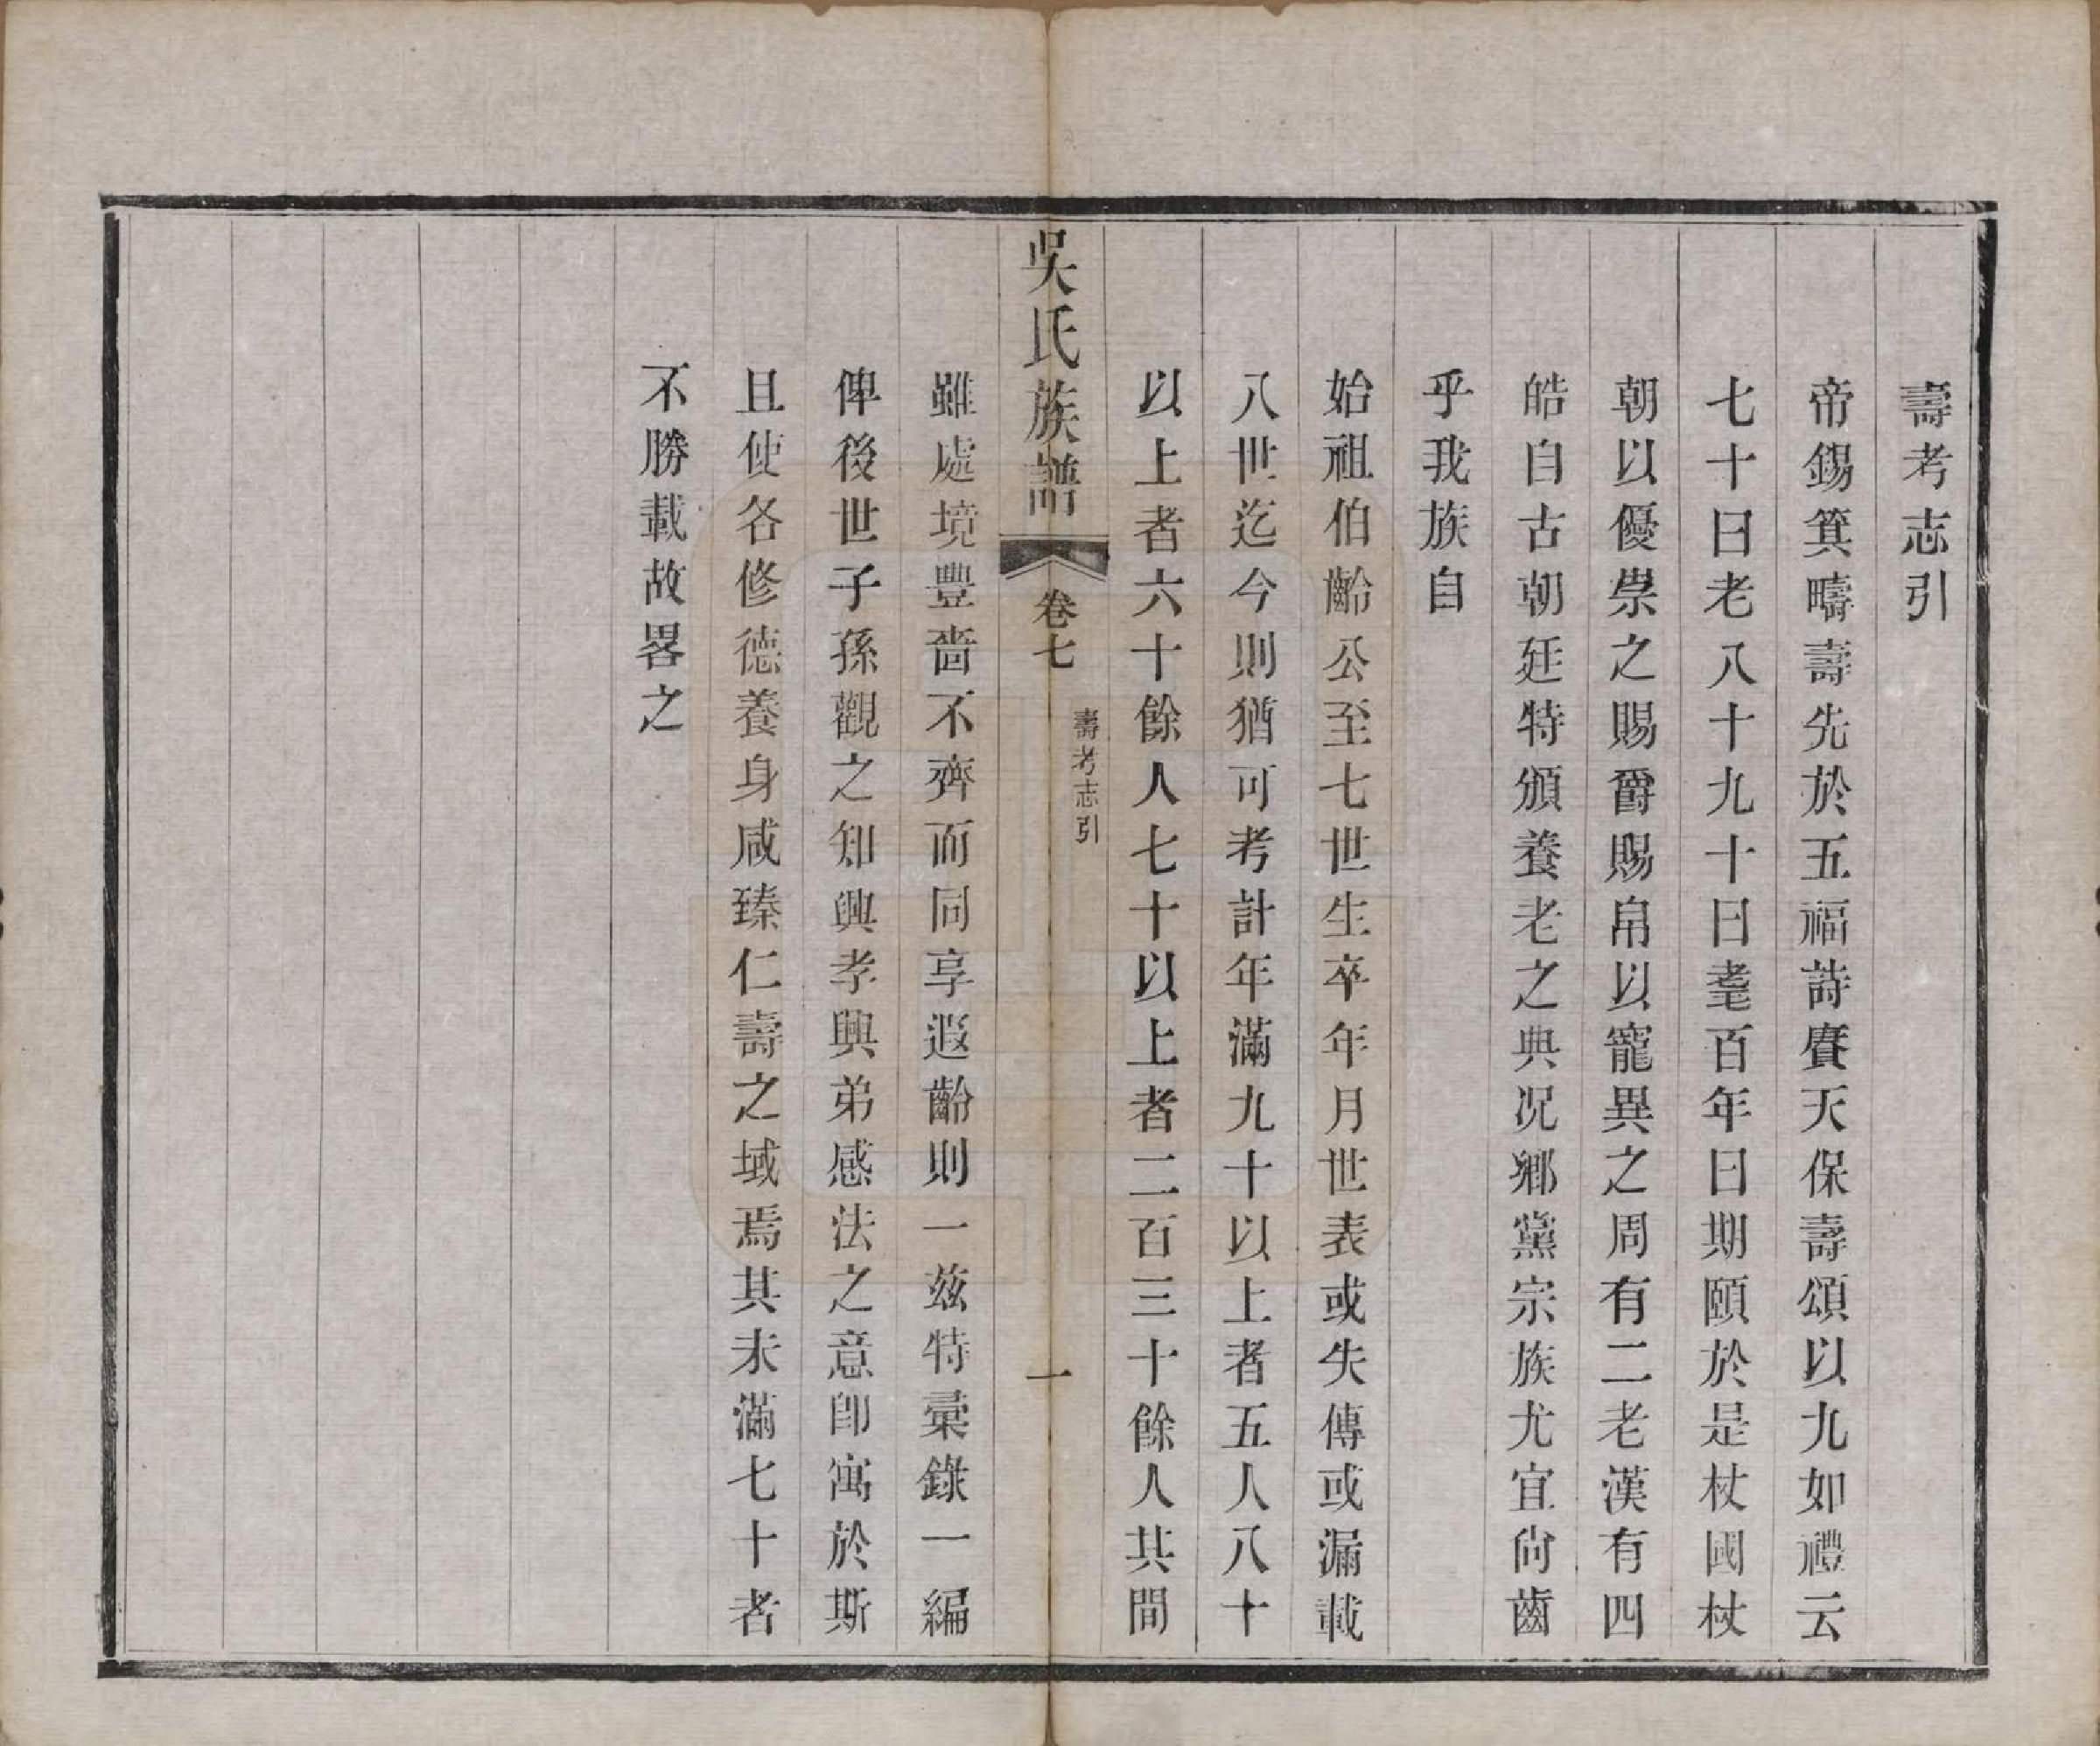 壽考志引
帝錫箕疇壽先於五福詩賡天保壽頌以九如禮云
七十曰老八十九十曰耄百年曰期頤於是杖國杖
朝以優崇之賜爵賜帛以寵異之周有二老漢有四
皓自古朝廷特頒養老之典况鄉黨宗族尤宜尙齒
乎我族自
始祖伯齡公至七世生卒年月世表或失傳或漏載
八世迄今則猶可考計年滿九十以上者五人八十
以上者六十餘人七十以上者二百三十餘人其間
吳氏族譜
卷七
壽考志引
一
雖處境豐嗇不齊而同享遐齡則一茲特彙錄一編
俾後世子孫觀之知興孝興弟感法之意卽寓於斯
且使各修德養身咸臻仁壽之域焉其未滿七十者
不勝載故畧之